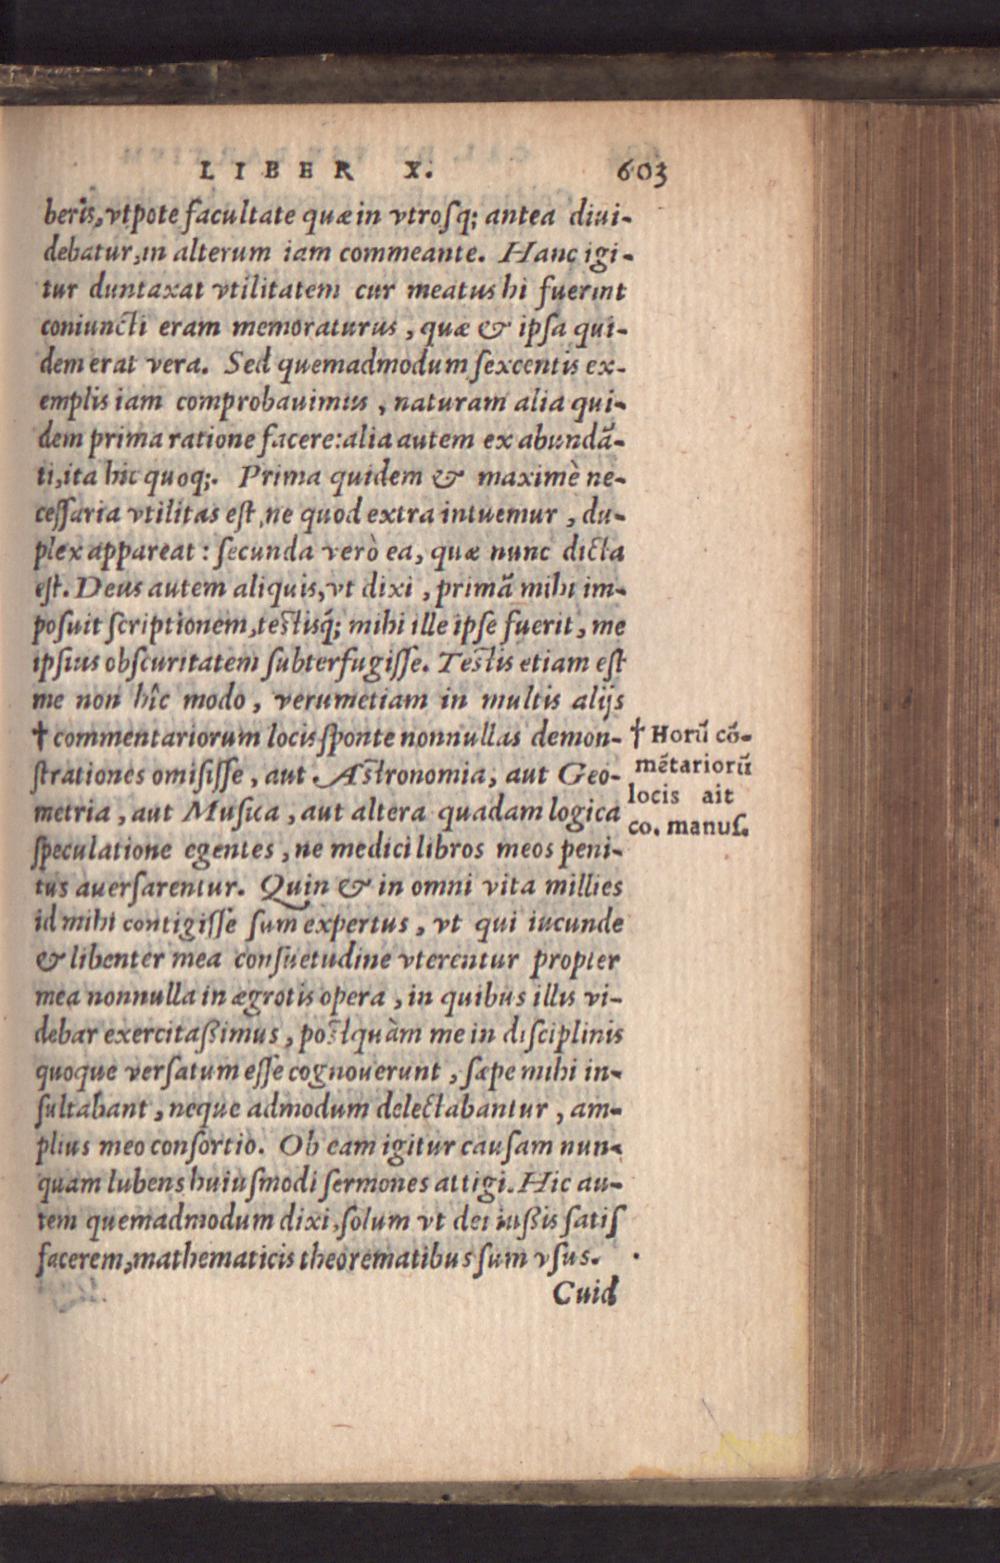 LIBER X. 603
beris, vtpote facultate quæ in vtroſq; antea diui-
debatur, in alterum iam commeante. Hanc igi-
tur duntaxat vtilitatem cur meatus hi fuerint
coniuncti eram memoraturus, quæ & ipſa qui-
dem erat vera. Sed quemadmodum ſexcentis ex-
emplis iam comprobauimus, naturam alia qui-
dem prima ratione facere: alia autem ex abundã-
ti, ita hic quoq;. Prima quidem & maximè ne-
ceſſaria vtilitas eſt, ne quod extra intuemur, du-
plex appareat: ſecunda verò ea, quæ nunc dicta
eſt. Deus autem aliquis, vt dixi, primã mihi im-
poſuit ſcriptionem, teſtisq́; mihi ille ipſe fuerit, me
ipſius obſcuritatem ſubterfugiſſe. Teſtis etiam eſt
me non hîc modo, verumetiam in multis alijs
† commentariorum locis ſponte nonnullas demon-
ſtrationes omiſiſſe, aut Aſtronomia, aut Geo-
metria, aut Muſica, aut altera quadam logica
ſpeculatione egentes, ne medici libros meos peni-
tus auerſarentur. Quin & in omni vita millies
id mihi contigiſſe ſum expertus, vt qui iucunde
& libenter mea conſuetudine vterentur propter
mea nonnulla in ægrotis opera, in quibus illis vi-
debar exercitaßimus, poſtquàm me in diſciplinis
quoque verſatum eſſe cognouerunt, ſæpe mihi in-
ſultabant, neque admodum delectabantur, am-
plius meo conſortio. Ob eam igitur cauſam nun-
quam lubens huiuſmodi ſermones attigi. Hic au-
tem quemadmodum dixi, ſolum vt dei iußis ſatiſ
facerem, mathematicis theorematibus ſum vſus.
Cuid
† Horũ cõ-
mẽtariorũ
locis ait
co. manuſ.